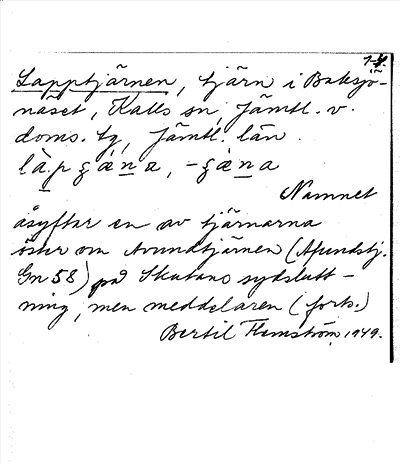 1-4.
Lapptjärnen, tjärn i Baksjö-
näset, Kalls sn, Jämtl. v.
doms. tg, Jämtl. län.
Namnet
åsyftar en av tjärnarna
öster om Avundtjärnen (Afundstj.
Gn 58) på Skutans sydslutt-
ning, men meddelaren (forts.)
Bertil Flemström, 1949.